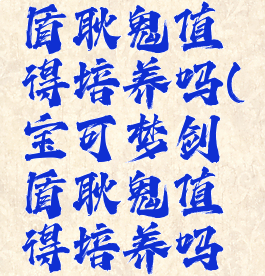 盾耿鬼值
得培养吗(
宝可梦剑
盾耿鬼值
得培养吗